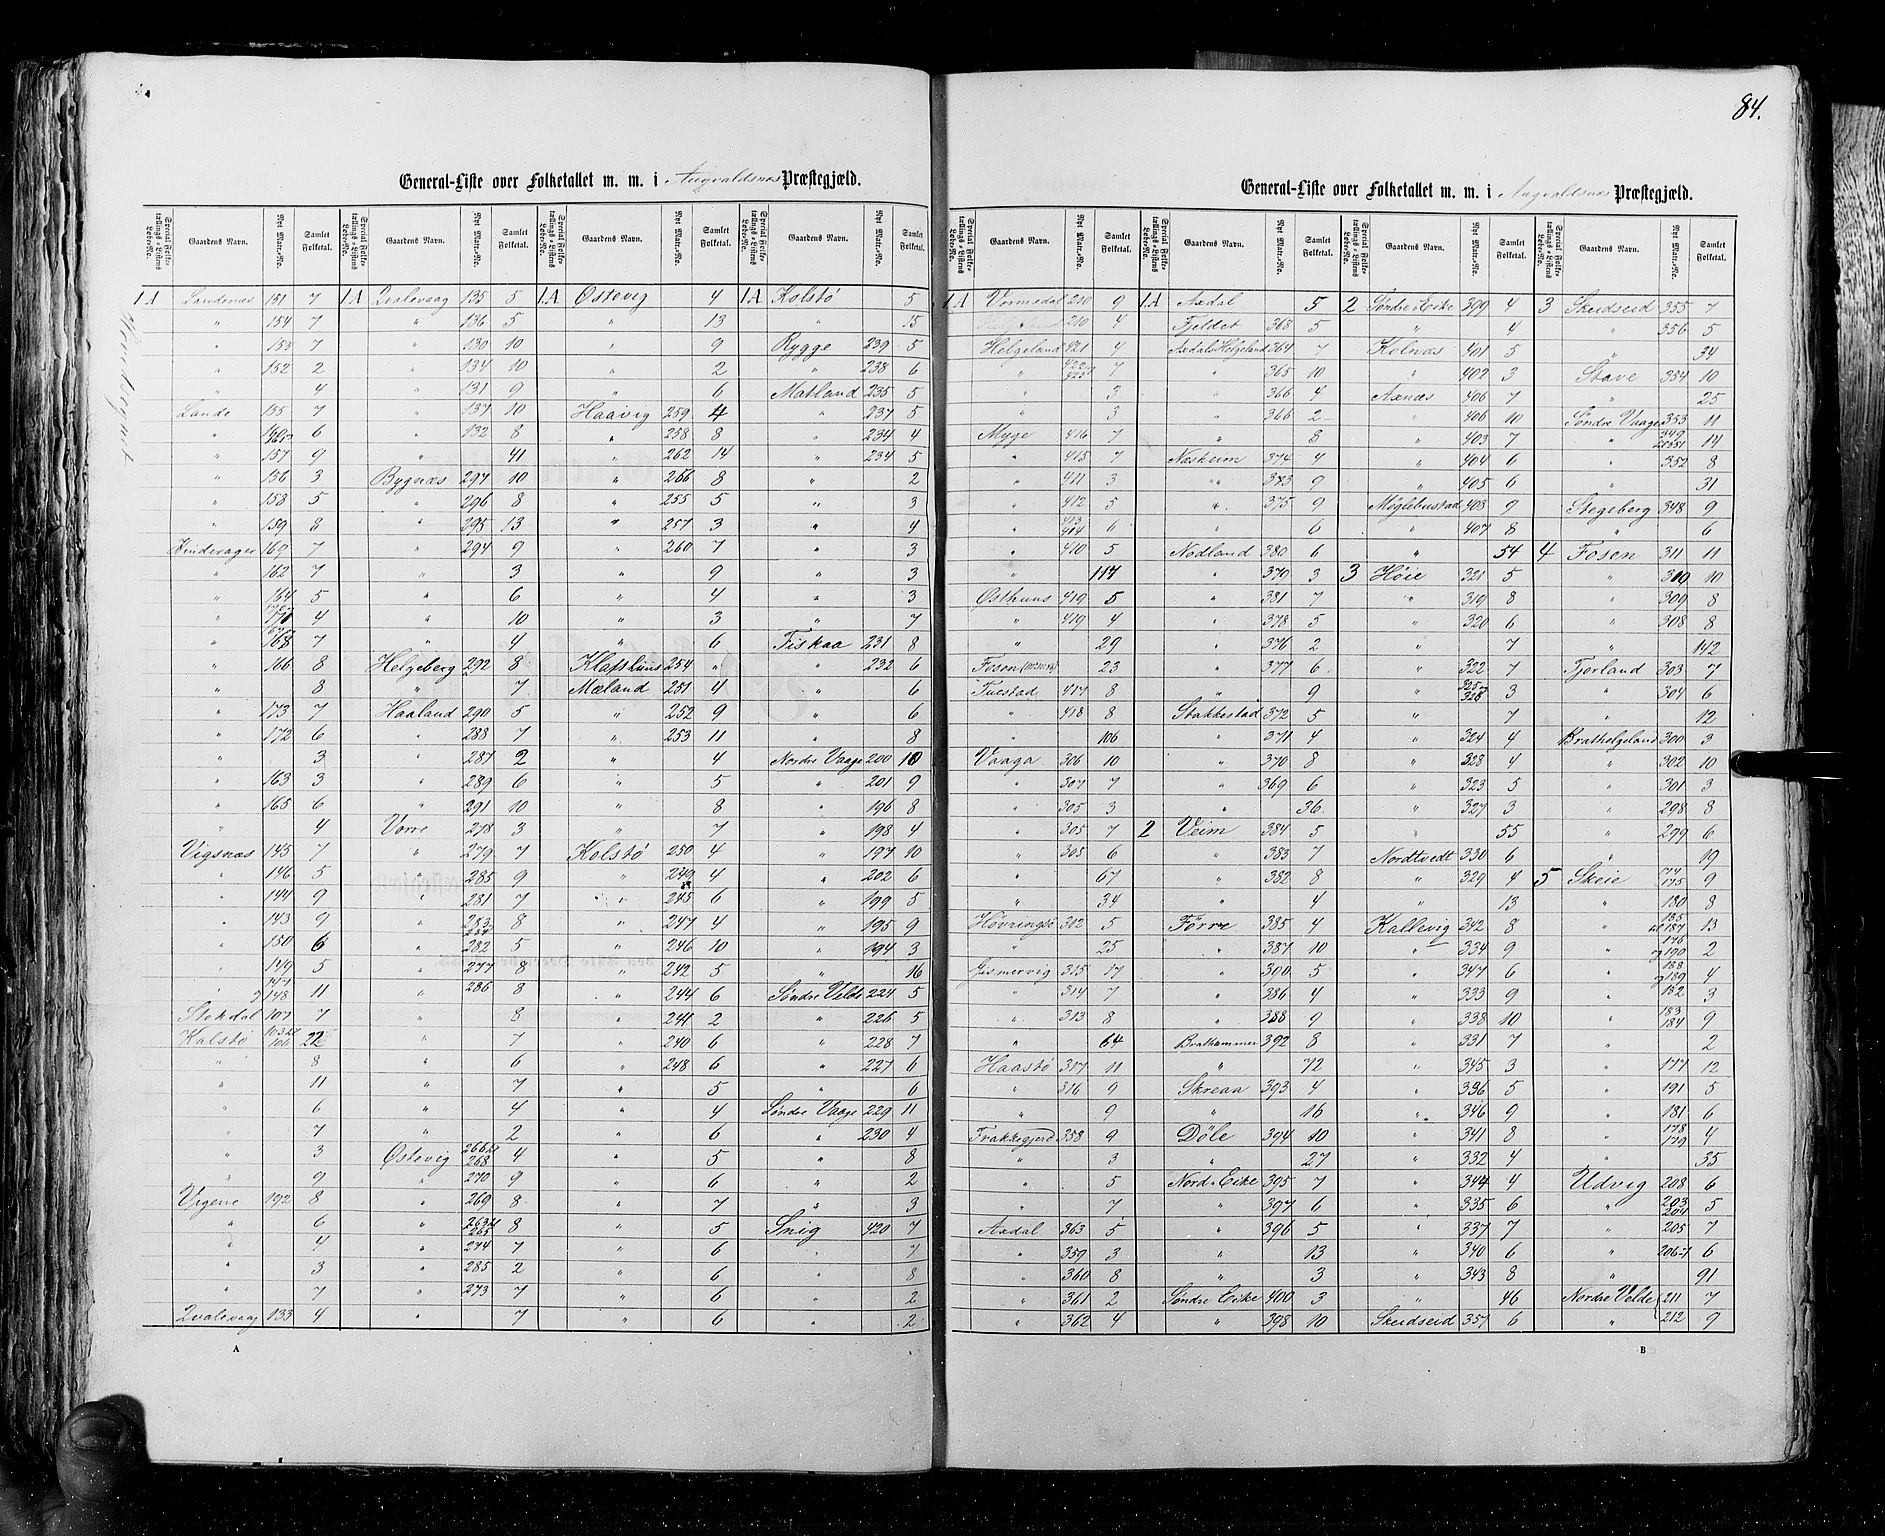 84.
General-Liste over Folketallet m. m. i Augvaldsnæs Præstegjæld.
Special Folketællings-Listens Løbe-No. Gaardens Navn. Nyt Matr.-No. Samlet Folketal.
1A Sandenæs 151 7
" 154 7
" 153 7
" 152 2
" 4
Sande 155 7
" 6
" 157 9
" 156 3
" 158 5
" 159 8
169 7
" 162 7
" 164 5
" 4
" 168 7
" 166 8
" 8
" 173 7
" 172 6
" 3
" 163 3
" 165 6
" 4
Vigsnæs 145 7
" 146 5
" 144 9
" 143 9
" 150 6
" 149 5
" 147 og 148 11
Stokdal 107 7
Kalstø 22
" 8
" 11
" 6
" 7
" 3
" 9
192 8
" 6
" 4
" 3
" 7
Qvalevaag 133 4
1A Qvalevaag 135 5
" 136 5
" 130 10
" 134 10
" 131 9
" 137 10
" 132 8
" 41
Bygnæs 297 10
" 296 8
" 295 13
" 294 9
" 3
" 6
" 10
" 4
Helgeberg 292 8
" 7
Haaland 290 5
" 288 7
" 287 2
" 289 6
" 291 10
Vorre 278 3
" 279 7
" 285 9
" 281 7
" 283 284 8
" 282 5
" 277 8
" 286 8
" 8
" 7
" 6
" 7
" 4
" 2
Østevig 266 til 268 4
" 270 9
" 269 8
" 263 til 265 8
" 274 7
" 285 2
" 273 7
" 7
1A Østevig 4
" 13
" 9
" 2
" 6
Haavig 259 4
" 258 8
" 262 14
" 256 8
" 255 5
" 257 3
" 260 7
" 9
" 4
" 3
" 6
254 "
Mæland 251 4
" 252 9
" 253 11
" 4
" 5
" 8
" 7
Kolstø 250 4
" 249 4
" 245 6
" 247 4
" 246 10
" 242 5
" 244 6
" 241 2
" 240 6
" 248 6
" 5
" 4
" 6
" 5
" 6
" 7
" 5
" 6
" 6
" 6
" 6
1A Kolstø 5
" 15
Rygge 239 5
" 238 6
Matland 235 5
" 237 5
" 234 4
" 234 5
" 2
" 3
" 4
" 3
" 3
" 3
" 7
Fiskaa 231 8
" 232 6
" 6
" 6
" 8
Nordre Vaage 200 10
" 201 9
" 196 8
" 198 4
" 197 10
" 202 6
" 199 5
" 195 9
" 194 3
" 16
Søndre Velde 224 5
" 226 5
" 228 7
" 227 6
" 6
Søndre Vaage 229 11
" 230 4
" 8
" 2
" 3
Snig 420 7
" 7
" 8
" 2
" 2
A
General-Liste over Folketallet m. m. i Augvaldsnæs Præstegjæld.
Special Folketællings-Listens Løbe-No. Gaardens Navn. Nyt Matr.-No. Samlet Folketal.
1A Vormedal 210 9
" 210 4
Helgeland 421 4
" 422 423 7
" 3
" 3
Myge 416 7
" 415 7
" 411 3
" 412 5
" 413 414 6
" 410 5
" 117
Østhuus 419 5
" 419 4
" 29
Fosen 23
Tuestad 417 8
" 418 8
" 106
Vaaga 306 10
" 307 7
" 305 3
" 305 7
" 305 6
" 67
" 34
Høvringsø 302 5
" 25
Gismervig 315 17
" 314 7
" 313 8
" 64
Haastø 317 11
" 316 9
" 9
Frakkegjerd 358 9
" 3
" 5
" 7
Axdal 363 5
" 359 3
" 360 8
" 361 2
" 362 4
1A Axdal 5
Fjeldet 368 5
Axdal Helgeland 364 7
" 365 10
" 366 4
" 366 2
" 3
Næsheim 374 4
" 373 9
" 375 9
" 6
Nodland 380 6
" 379 3
" 381 7
" 378 5
" 376 2
" 377 6
" 9
Stakkestad 372 5
" 371 4
" 370 8
" 369 6
" 36
2 Veim 384 5
" 383 7
" 382 8
" 4
Førre 385 4
" 387 10
" 300 5
" 386 4
" 388 9
Brathammer 392 8
" 72
Skreaa 393 4
" 16
Døle 394 10
" 27
Nord Eike 395 7
" 397 6
" 396 5
" 13
" 3
Søndre Eike 400 3
" 398 10
2 Søndre Eike 399 4
" 4
Kolnæs 401 5
" 402 3
Axnæs 406 7
" 406 10
" 403 7
" 404 6
" 405 6
Møglebustad 408 9
" 407 8
" 54
3 Høie 321 5
" 319 8
" 320 6
" 7
" 322 7
" 3
" 7
" 324 4
" 328 4
" 323 5
" 327 3
" 55
Nordtvedt 330 6
" 329 4
" 13
Kallevig 342 8
" 334 9
" 347 6
" 333 9
" 338 10
" 331 7
" 345 3
" 396 5
" 346 9
" 341 8
" 332 4
" 344 4
" 335 6
" 337 7
" 340 6
" 343 8
" 46
Skeidseid 357 6
3 Skeidseid 355 7
" 356 5
" 34
Stave 354 10
" 25
Søndre Vaage 353 11
" 14
" 352 8
" 31
Stegeberg 348 9
" 6
4 Fosen 311 11
" 310 10
" 309 8
" 308 8
" 142
Tjorland 303 7
" 304 6
" 12
Brathelgeland 300 3
" 302 10
" 301 3
" 298 8
" 299 6
" 19
5 Skeie 174 175 9
" 180 8
" 185 til 187 13
" 176 og 190 2
" 188 og 189 4
" 182 3
" 183 184 9
" 2
" 177 12
" 191 5
" 181 6
" 178 179 4
" 35
Udvig 208 6
" 203 204 5
" 205 7
" 206-7 6
" 91
Nordre Velde 211 7
" 212 9
B